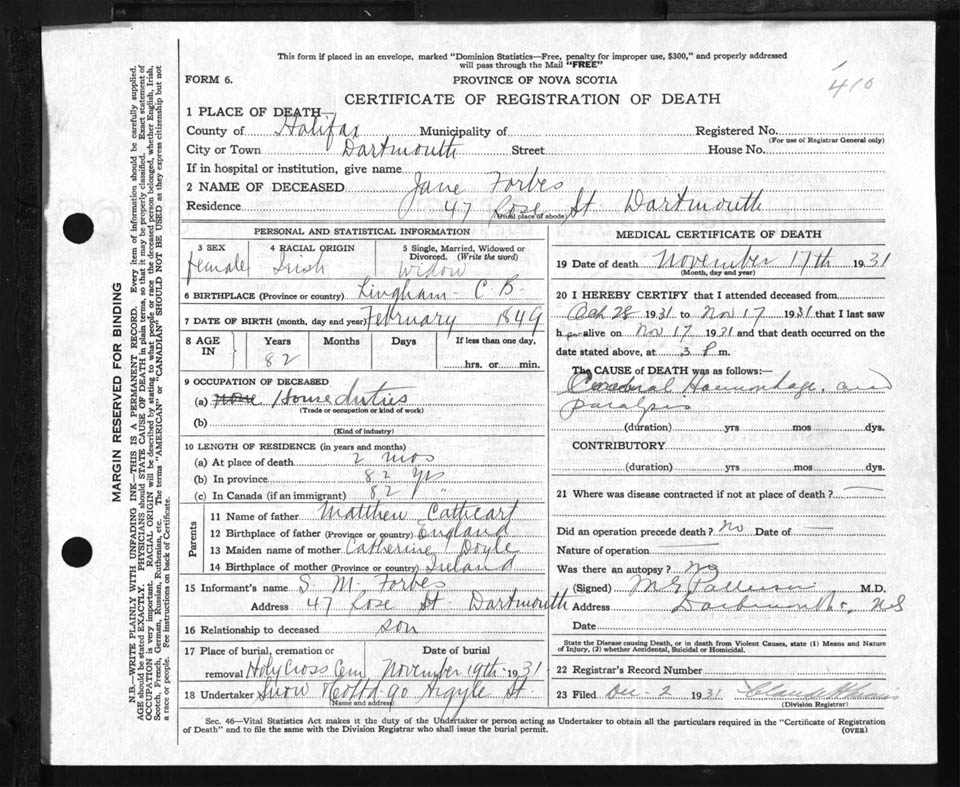 This form if placed in an envelope, marked "Dominion Statistics—Free, penalty for improper use, $300," and properly addressed
will pass through the Mail "FREE"
410
FORM 6.
PROVINCE OF NOVA SCOTIA
CERTIFICATE OF REGISTRATION OF DEATH
1 PLACE OF DEATH
County of Halifax Municipality of Registered No.
(For use of Registrar General only)
City or Town Dartmouth Street House No.
If in hospital or institution, give name
2 NAME OF DECEASED Jane Forbes
Residence 47 Rose St. Dartmouth
(Usual place of abode)
PERSONAL AND STATISTICAL INFORMATION
3 SEX 4 RACIAL ORIGIN 5 Single, Married, Widowed or Divorced. (Write the word)
Female Irish Widow
6 BIRTHPLACE (Province or country) Lingham - C. B.
7 DATE OF BIRTH (month, day and year) February 1849
8 AGE IN Years Months Days If less than one day,
82 hrs. or min.
9 OCCUPATION OF DECEASED
(a) None House duties
(Trade or occupation or kind of work)
(b)
(Kind of industry)
10 LENGTH OF RESIDENCE (in years and months)
(a) At place of death 2 mos
(b) In province 82 yrs
(c) In Canada (if an immigrant) 82 "
Parents
11 Name of father Matthew Cathcart
12 Birthplace of father (Province or country) England
13 Maiden name of mother Catherine Doyle
14 Birthplace of mother (Province or country) Ireland
15 Informant's name S. M. Forbes
Address 47 Rose St. Dartmouth
16 Relationship to deceased son
17 Place of burial, cremation or removal Date of burial
Holy Cross Cem November 19th 1931
18 Undertaker Snow & Co Ltd 90 Argyle St.
(Name and address)
MEDICAL CERTIFICATE OF DEATH
19 Date of death November 17th 1931
(Month, day and year)
20 I HEREBY CERTIFY that I attended deceased from
Oct 28 1931 to Nov 17 1931 that I last saw
her alive on Nov 17 1931 and that death occurred on the
date stated above, at 3 P. m.
The CAUSE of DEATH was as follows:
Cerebral Haemorrhage, and
paralysis
(duration) yrs mos dys.
CONTRIBUTORY
(duration) yrs mos dys.
21 Where was disease contracted if not at place of death? —
Did an operation precede death? No Date of —
Nature of operation —
Was there an autopsy? No
(Signed) M.D.
Address Dartmouth, NS
Date
State the Disease causing Death, or in death from Violent Causes, state (1) Means and Nature
of Injury, (2) whether Accidental, Suicidal or Homicidal.
22 Registrar's Record Number
23 Filed Dec - 2 1931
(Division Registrar)
Sec. 46—Vital Statistics Act makes it the duty of the Undertaker or person acting as Undertaker to obtain all the particulars required in the "Certificate of Registration
of Death" and to file the same with the Division Registrar who shall issue the burial permit.
(OVER)
MARGIN RESERVED FOR BINDING
N.B.—WRITE PLAINLY WITH UNFADING INK—THIS IS A PERMANENT RECORD. Every item of information should be carefully supplied.
AGE should be stated EXACTLY. PHYSICIANS should STATE CAUSE OF DEATH in plain terms, so that it may be properly classified. Exact statement of
OCCUPATION is very important. RACIAL ORIGIN will be described by stating to what people or race the deceased person belonged, whether English, Irish,
Scotch, French, German, Russian, Ruthenian, etc. The terms "AMERICAN" or "CANADIAN" SHOULD NOT BE USED as they express citizenship but not
a race or people. Fee instructions on back of Certificate.